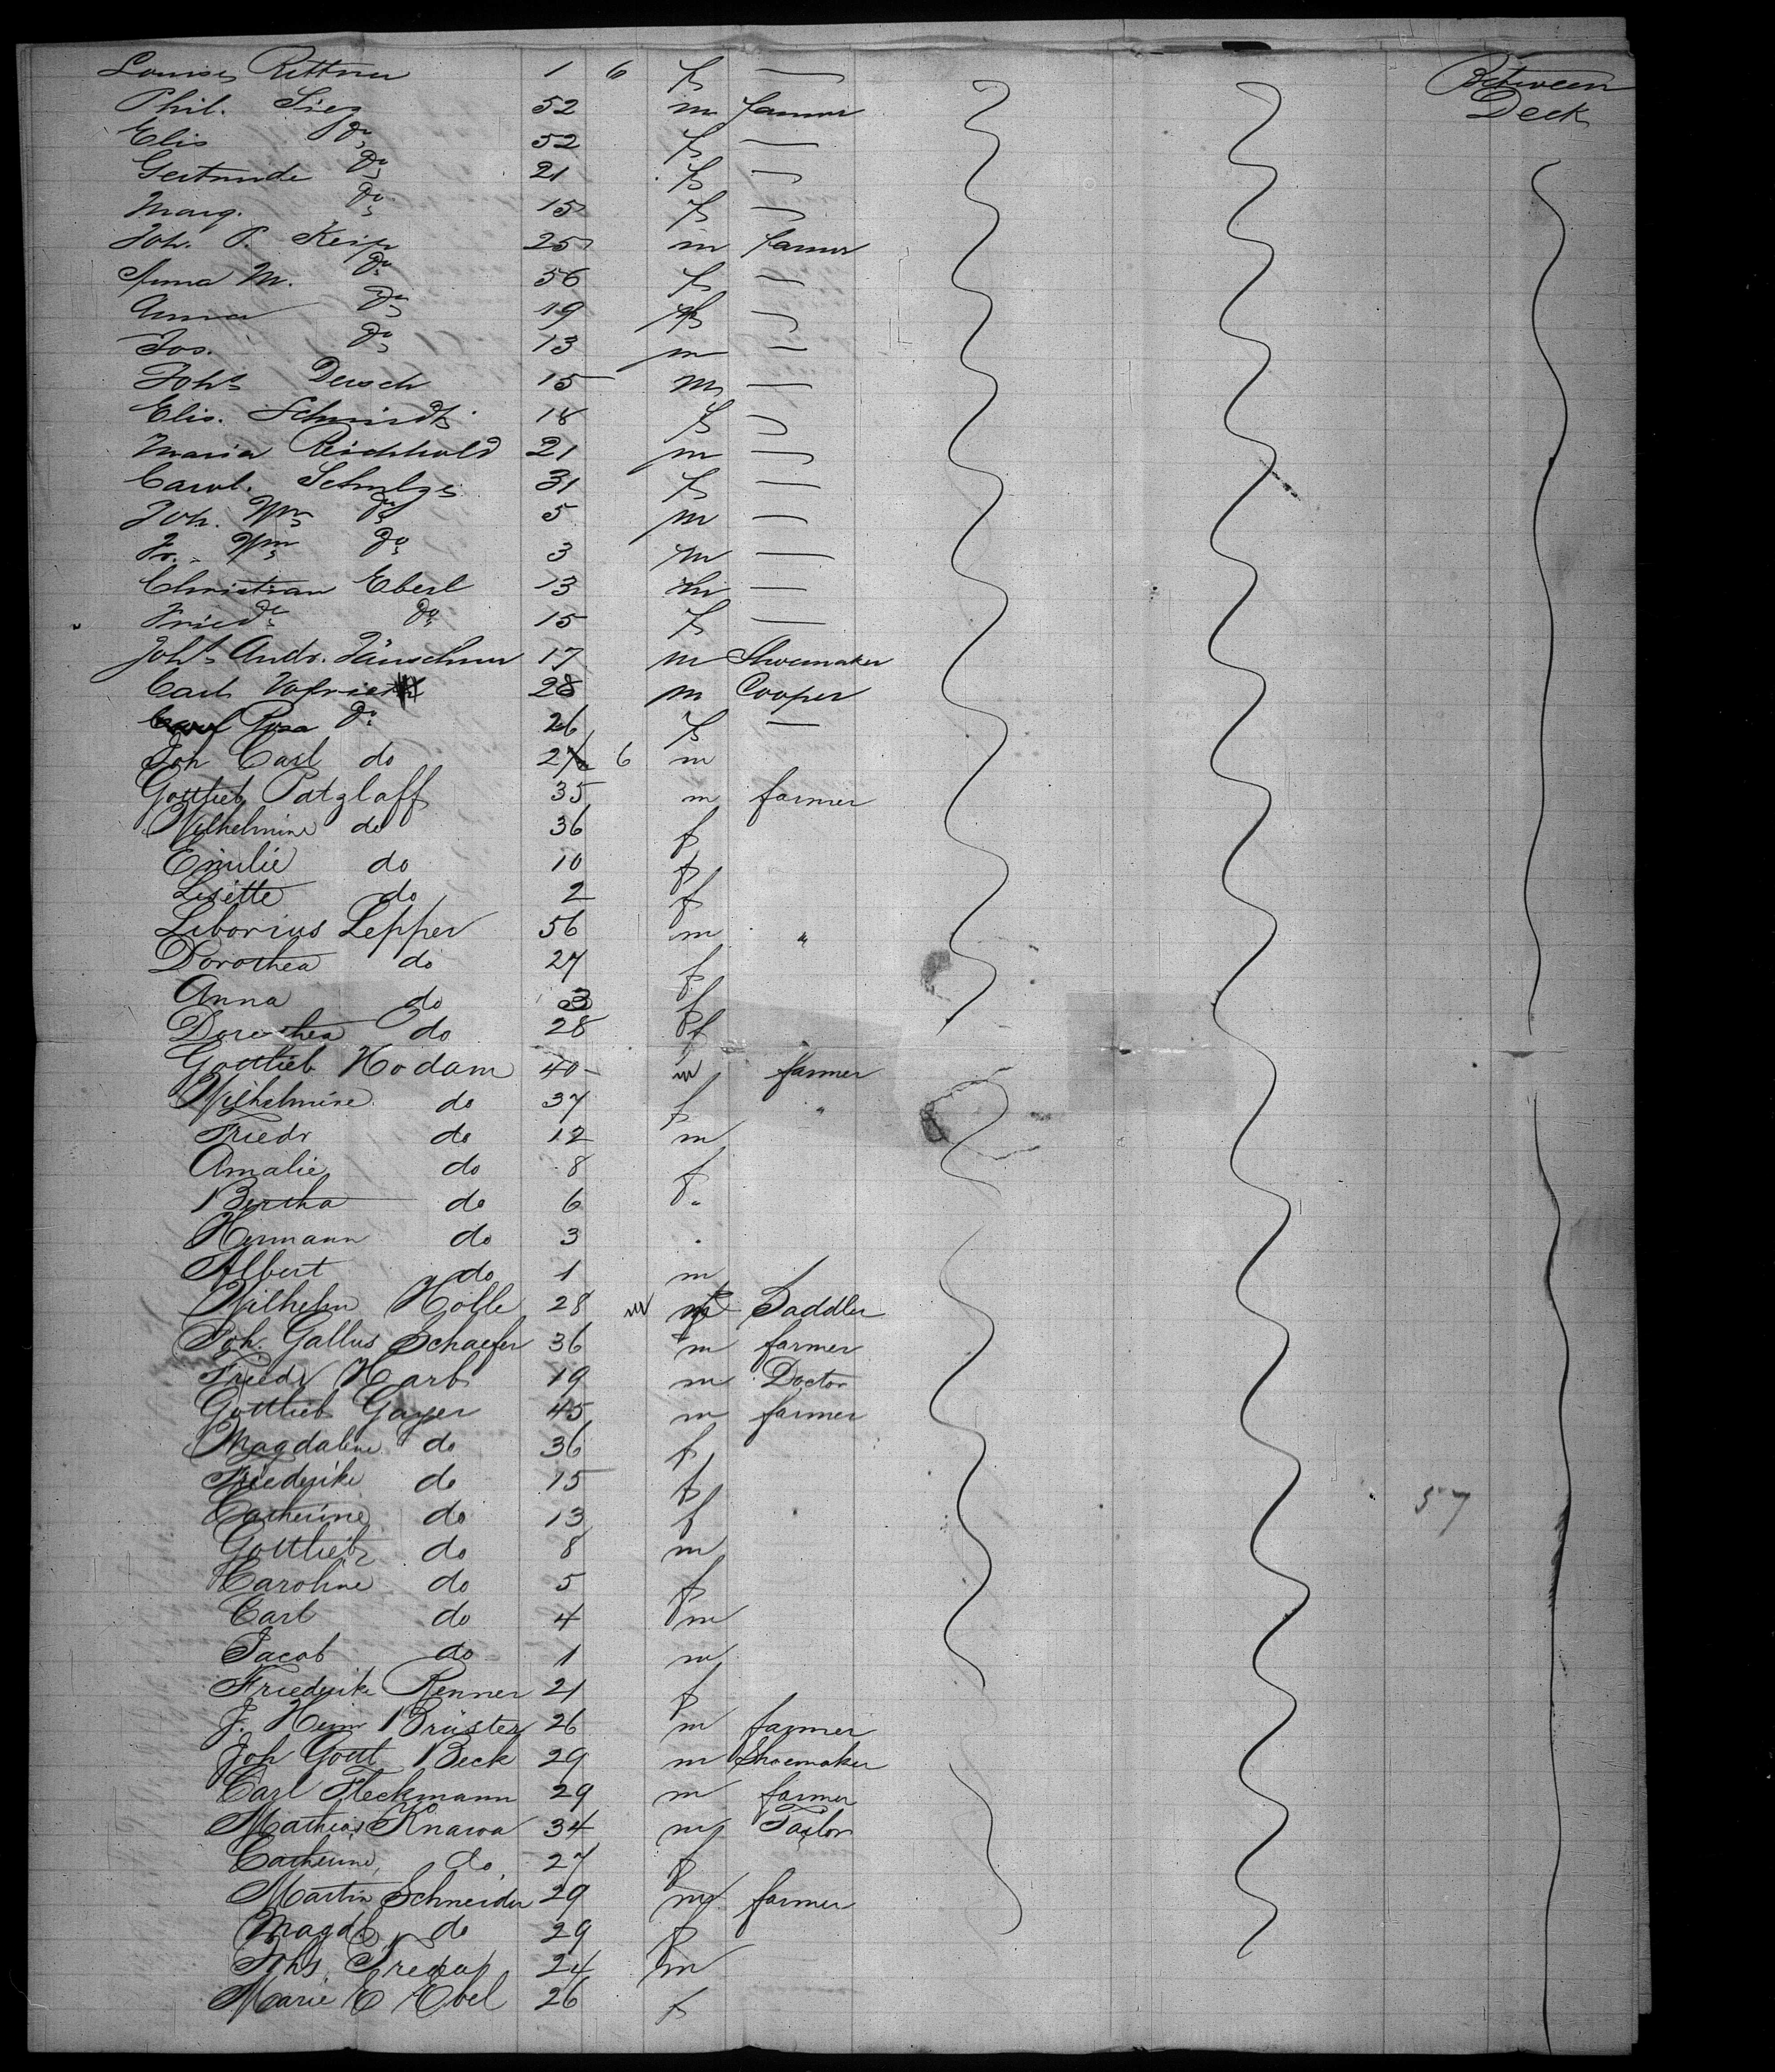 Louise Rettner 1 6 f — Between
Phil. Sieg 52 m farmer Deck
Elis do 52 f —
Gertrude do 21 f —
Marg. do 15 f —
Joh. P. Keip 25 m farmer
Anna M. do 56 f —
Anna do 19 f —
Jos. do 13 m —
Johs Deusch 15 m —
Elis. Schmidt 18 f —
Maria Reichhold 21 m —
Carol. Schulze 31 f —
Joh. Wm do 5 m —
Fr. Wm do 3 m —
Christian Eberl 13 m —
Friedke do 15 f —
Johs Andr. Jänschner 17 m Shoemaker
Carl 28 m Cooper
Rosa do 26 f —
Joh Carl do 2 6 m
Gottlieb Patzlaff 35 m farmer
Wilhelmine do 36 f
Emilie do 10 f
Lisette do 2 f
Liborius Lepper 56 m "
Dorothea do 27 f
Anna do 3 f
Dorothea do 28 f
Gottlieb Hodam 40 m farmer
Wilhelmine do 37 f "
Friedr do 12 m
Amalie do 8 f
Bertha do 6 "
Hermann do 3 .
Albert do 1 m
Wilhelm Hölle 28 m Saddler
Joh. Gallus Schaefer 36 m farmer
Friedr Harb 19 m Doctor
Gottlieb Gayer 45 m farmer
Magdalene do 36 f
Friederike do 15 f 57
Catherine do 13 f
Gottlieb do 8 m
Caroline do 5 f
Carl do 4 m
Jacob do 1 m
Friederike Renner 21 f
J. Heinr Brüster 26 m farmer
Joh Gottl Beck 29 m Shoemaker
Carl Fleckmann 29 m farmer
Mathias Knawa 34 m Tailor
Catherine do 27 f
Martin Schneider 29 m farmer
Magd. do 29 f
Johs 24 m
Marie E Ebel 26 f